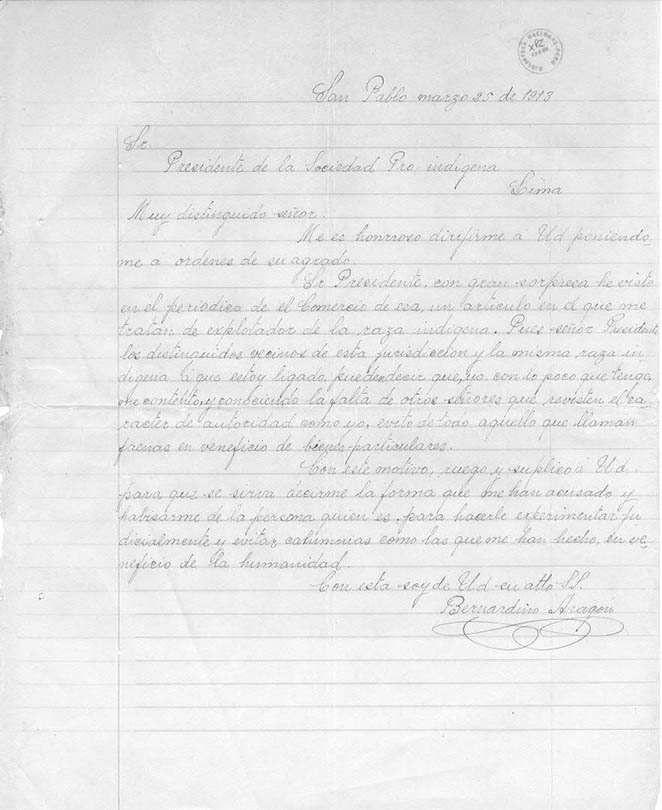 BIBLIOTECA NACIONAL-PERU
San Pablo marzo 25 de 1913
Sr
Presidente de la Sociedad Pro indigena
Lima
Muy distinguido señor:
Me es honrroso dirifirme á Ud poniendo
me a ordenes de su agrado.
Sr Presidente, con gran sorpresa he visto
en el periodico de el Comercio de esa, un articulo en el que me
tratan de explotador de la raza indigena. Pues señor Presidente
los distinguidos vecinos de esta jurisdiccion y la misma raza in
digena á que estoy ligado, pueden decir que, yo, con lo poco que tengo,
me contento, y conociendo la falta de otros señores que revisten el ca-
racter de autoridad como yo, evito de todo aquello que llaman
faenas en veneficio de bienes particulares.
Con este motivo, ruego, y suplico á Ud.
para que se sirva decirme la forma que me han acusado y
habisarme de la persona quien es, para hacerle experimentar ju
dicialmente y evitar calumnias como las que me han hecho, en ve-
neficio de la humanidad.
Con esta soy de Ud su atto S.S.
Bernardino Aragon